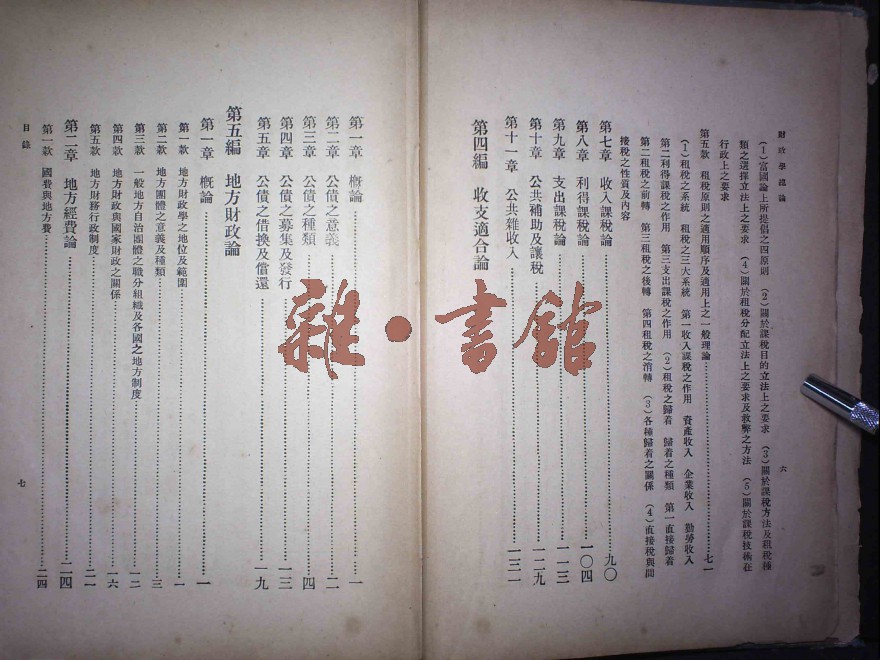 財政學總論
六
(1)富國論上所提倡之四原則 (2)關於課稅目的立法上之要求 (3)關於課稅方法及租稅種
類之選擇立法上之要求 (4)關於租稅分配立法上之要求及救弊之方法 (5)關於課稅技術在
行政上之要求
第五款 租稅原則之適用順序及適用上之一般理論 七一
(1)租稅之系統 租稅之三大系統 第一收入課稅之作用 資產收入 企業收入 勤勞收入
第二利得課稅之作用 第三支出課稅之作用 (2)租稅之歸着 歸着之種類 第一直接歸着
第二租稅之前轉 第三租稅之後轉 第四租稅之消轉 (3)各種歸着之關係 (4)直接稅與間
接稅之性質及內容
第七章 收入課稅論 九〇
第八章 利得課稅論 一〇四
第九章 支出課稅論 一一三
第十章 公共補助及讓稅 一二九
第十一章 公共雜收入 一三一
第四編 收支適合論
第一章 概論 一
第二章 公債之意義 二
第三章 公債之種類 四
第四章 公債之募集及發行 一三
第五章 公債之借換及償還 一九
第五編 地方財政論
第一章 概論 一
第一款 地方財政學之地位及範圍 一
第二款 地方團體之意義及種類 三
第三款 一般地方自治團體之職分組織及各國之地方制度 一二
第四款 地方財政與國家財政之關係 一六
第五款 地方財務行政制度 二一
第二章 地方經費論 二四
第一款 國費與地方費 二四
目錄
七
雜•書館